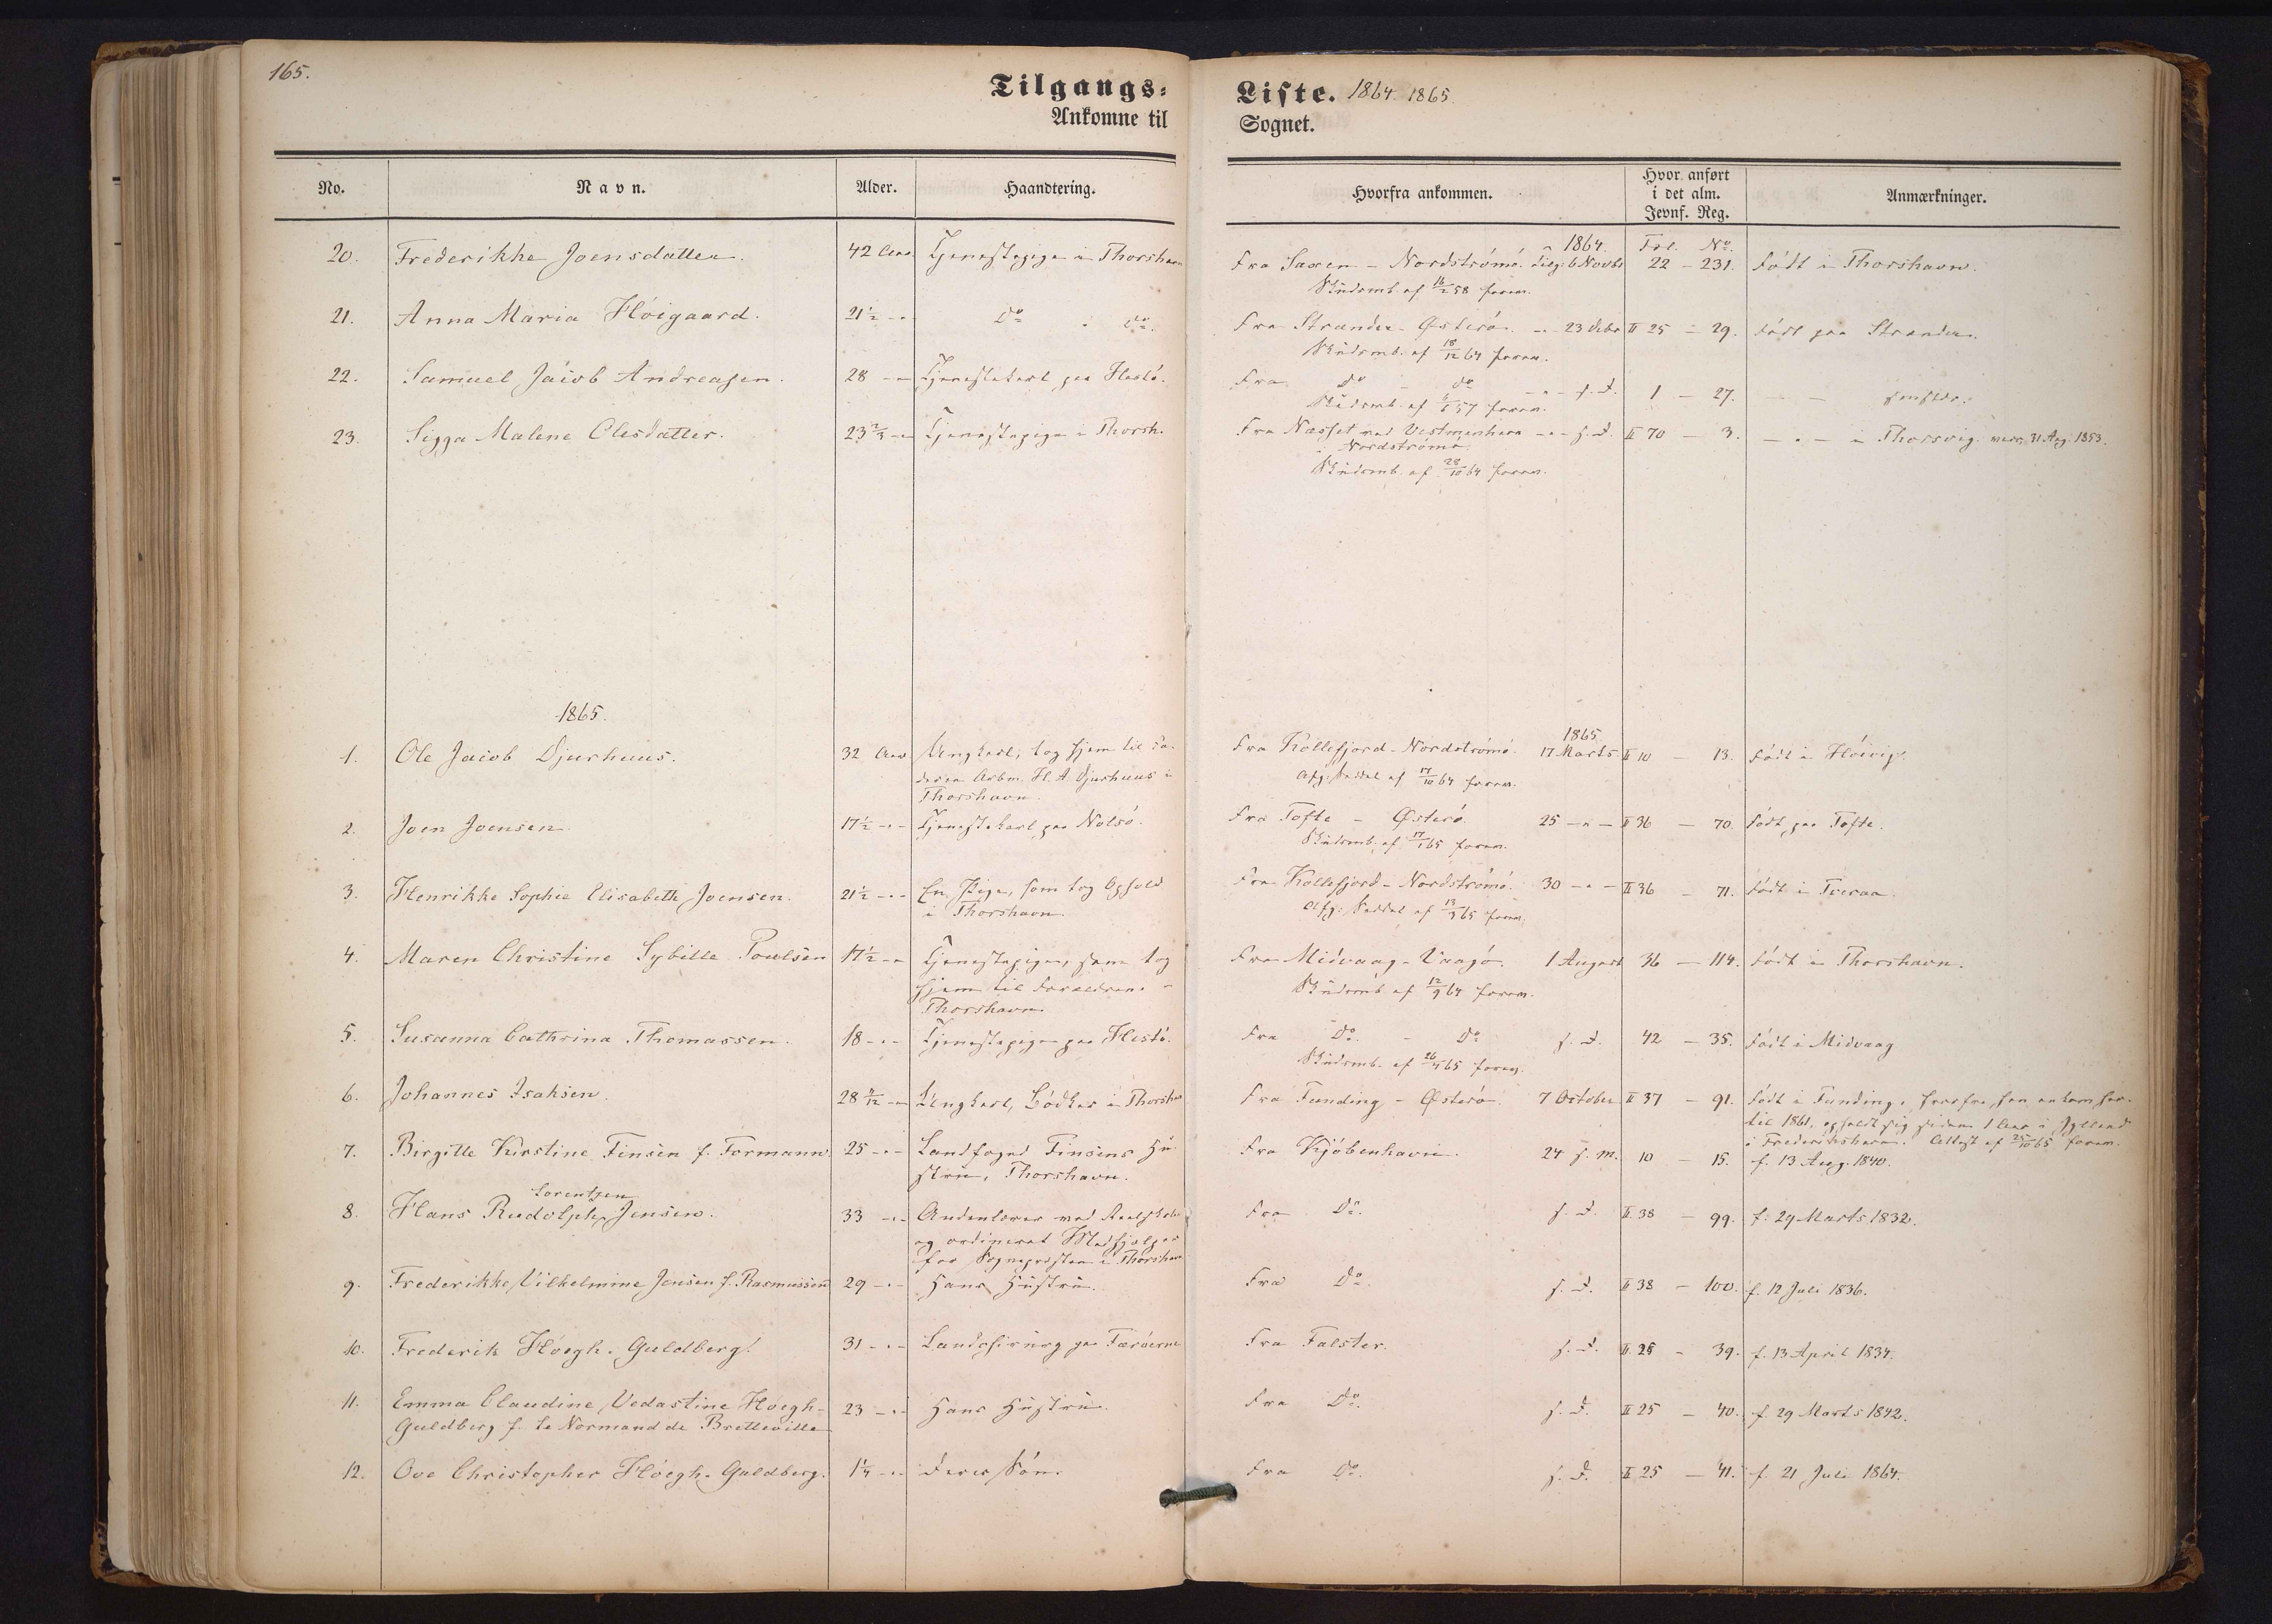 165.
Tilgangs=
Liste. 1864. 1865
Ankomne til
Sognet.
No.
Navn.
Alder.
Haandtering.
Hvorfra ankommen.
Hvor anført
i det alm.
Jevnf. Reg.
Anmærkninger.
1864.
Fol. No.
20. Frederikke Joensdatter. 42 Aar Tjenestepige i Thorshavn Fra Saxen - Nordströmö. 6 Novbr 22 - 231. Född i Thorshavn.
Skudsmb. af 16/2 58 forev.
21. Anna Maria Höigaard. 21½ - " Do " do. Fra Strander - Österö. - " - 23 Debr II 25 - 29. Född paa Strander.
Skudsmb. af 18/12 64 forev.
22. Samuel Jacob Andreasen. 28 - " Tjenestekarl paa Hestö. Fra do - do - " - s. D. 1 - 27. - "
Skudsmb. af 57 forev.
23. Sigga Malene Olesdatter. 23⅔ - " Tjenestepige i Thorsh. Fra Næsset ved Vestmanhavn - " - s. D. II 70 - 3. - " - i Thorsvig. 31 Aug. 1853.
Nordströmö
Skudsmb. af 28/10 64 forev.
1865.
1865
1. Ole Jacob Djurhuus. 32 Aar Ungkarl, tog hjem til Fa- Fra Kollefjord - Nordströmö. 17 Marts II 10 - 13. Född i Höivig.
deren Arbm. H. A. Djurhuus i Afg. Seddel af 17/10 64 forev.
Thorshavn.
2. Joen Joensen. 17½ - " - Tjenestekarl paa Nolsö. Fra Tofte - Österö. 25 - " - II 36 - 70. Född paa Tofte.
Skudsmb. af 17/1 65 forev.
3. Henrikke Sophie Elisabeth Joensen. 21½ - " - En Pige, som tog Ophold Fra Kollefjord - Nordströmö. 30 - " - II 36 - 71. Född i Tveraa.
i Thorshavn. Afg. Seddel af 13/3 65 forev.
4. Maren Christine Sybille Poulsen 17½ - " Tjenestepige, som tog Fra Midvaag - Vaagö. 1 August 36 - 114. Född i Thorshavn.
hjem til Forældrene - Skudsmb. af 12/9 64 forev.
Thorshavn.
5. Susanna Cathrina Thomassen. 18 - " - Tjenestepige paa Hestö. Fra Do. - Do. s. D. 42 - 35. Född i Midvaag
Skudsmb. af 26/4 65 forev.
6. Johannes Isaksen. 28 - " Ungkarl, Bödker i Thorshavn Fra Funding - Österö. 7 October II 37 - 91. Född i Funding, hvorfra han ankom her-
til 1861, opholdt sig siden 1 Aar i Jylland
i Frederikshavn. Attest af 25/10 65 forev.
7. Birgitte Kirstine Finsen f. Formann. 25 - " - Landfoged Finsens Hu- Fra Kjöbenhavn. 24 s. M. 10 - 15. f. 13 Aug. 1840.
stru, Thorshavn.
Lorentzen
8. Hans Rudolph Jensen. 33 - " - Andenlærer ved Realskolen Fra Do. s. D. II 38 - 99. f. 29 Marts 1832.
og ordineret Medhjelper
for Sognepræsten i Thorshavn
9. Frederikke Vilhelmine Jensen f. Rasmussen 29 - " - Hans Hustru. Fra Do. s. D. II 38 - 100. f. 12 Juli 1836.
10. Frederik Höegh-Guldberg. 31 - " - Landchirurg paa Færöerne Fra Falster. s. D. II 25 - 39. f. 13 April 1834.
11. Emma Claudine Vedastine Höegh- 23 - " - Hans Hustru. Fra Do. s. D. II 25 - 40. f. 29 Marts 1842.
Guldberg f. le Normand de Bretteville
12. Ove Christopher Höegh-Guldberg. 1¼ - " - deres Sön. Fra Do. s. D. II 25 - 41. f. 21 Juli 1864.